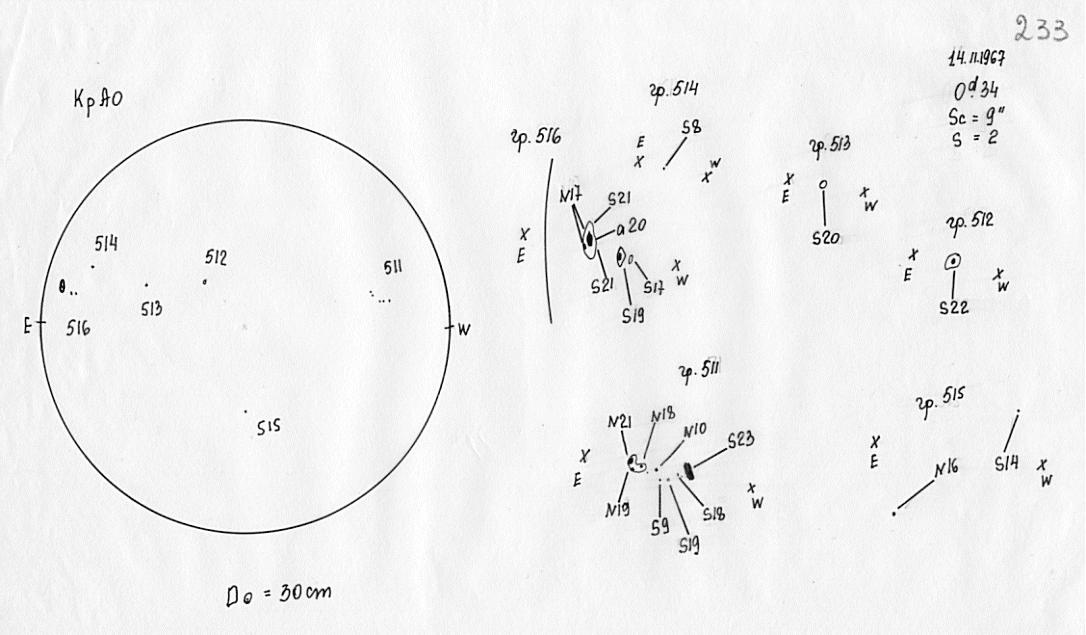 233
14.11.1967
0ᵈ.34
Sc = 9"
S = 2
КрАО
514
512
511
513
E
516
W
515
D⊙ = 30cm
гр. 516
N17
S21
a20
X
E
S21
S17
S19
X
W
гр. 514
E
X
S8
W
X
гр. 513
X
E
X
W
S20
гр. 512
X
E
X
W
S22
гр. 511
N21
N18
N10
S23
X
E
N19
S9
S19
S18
X
W
гр. 515
X
E
N16
S14
X
W